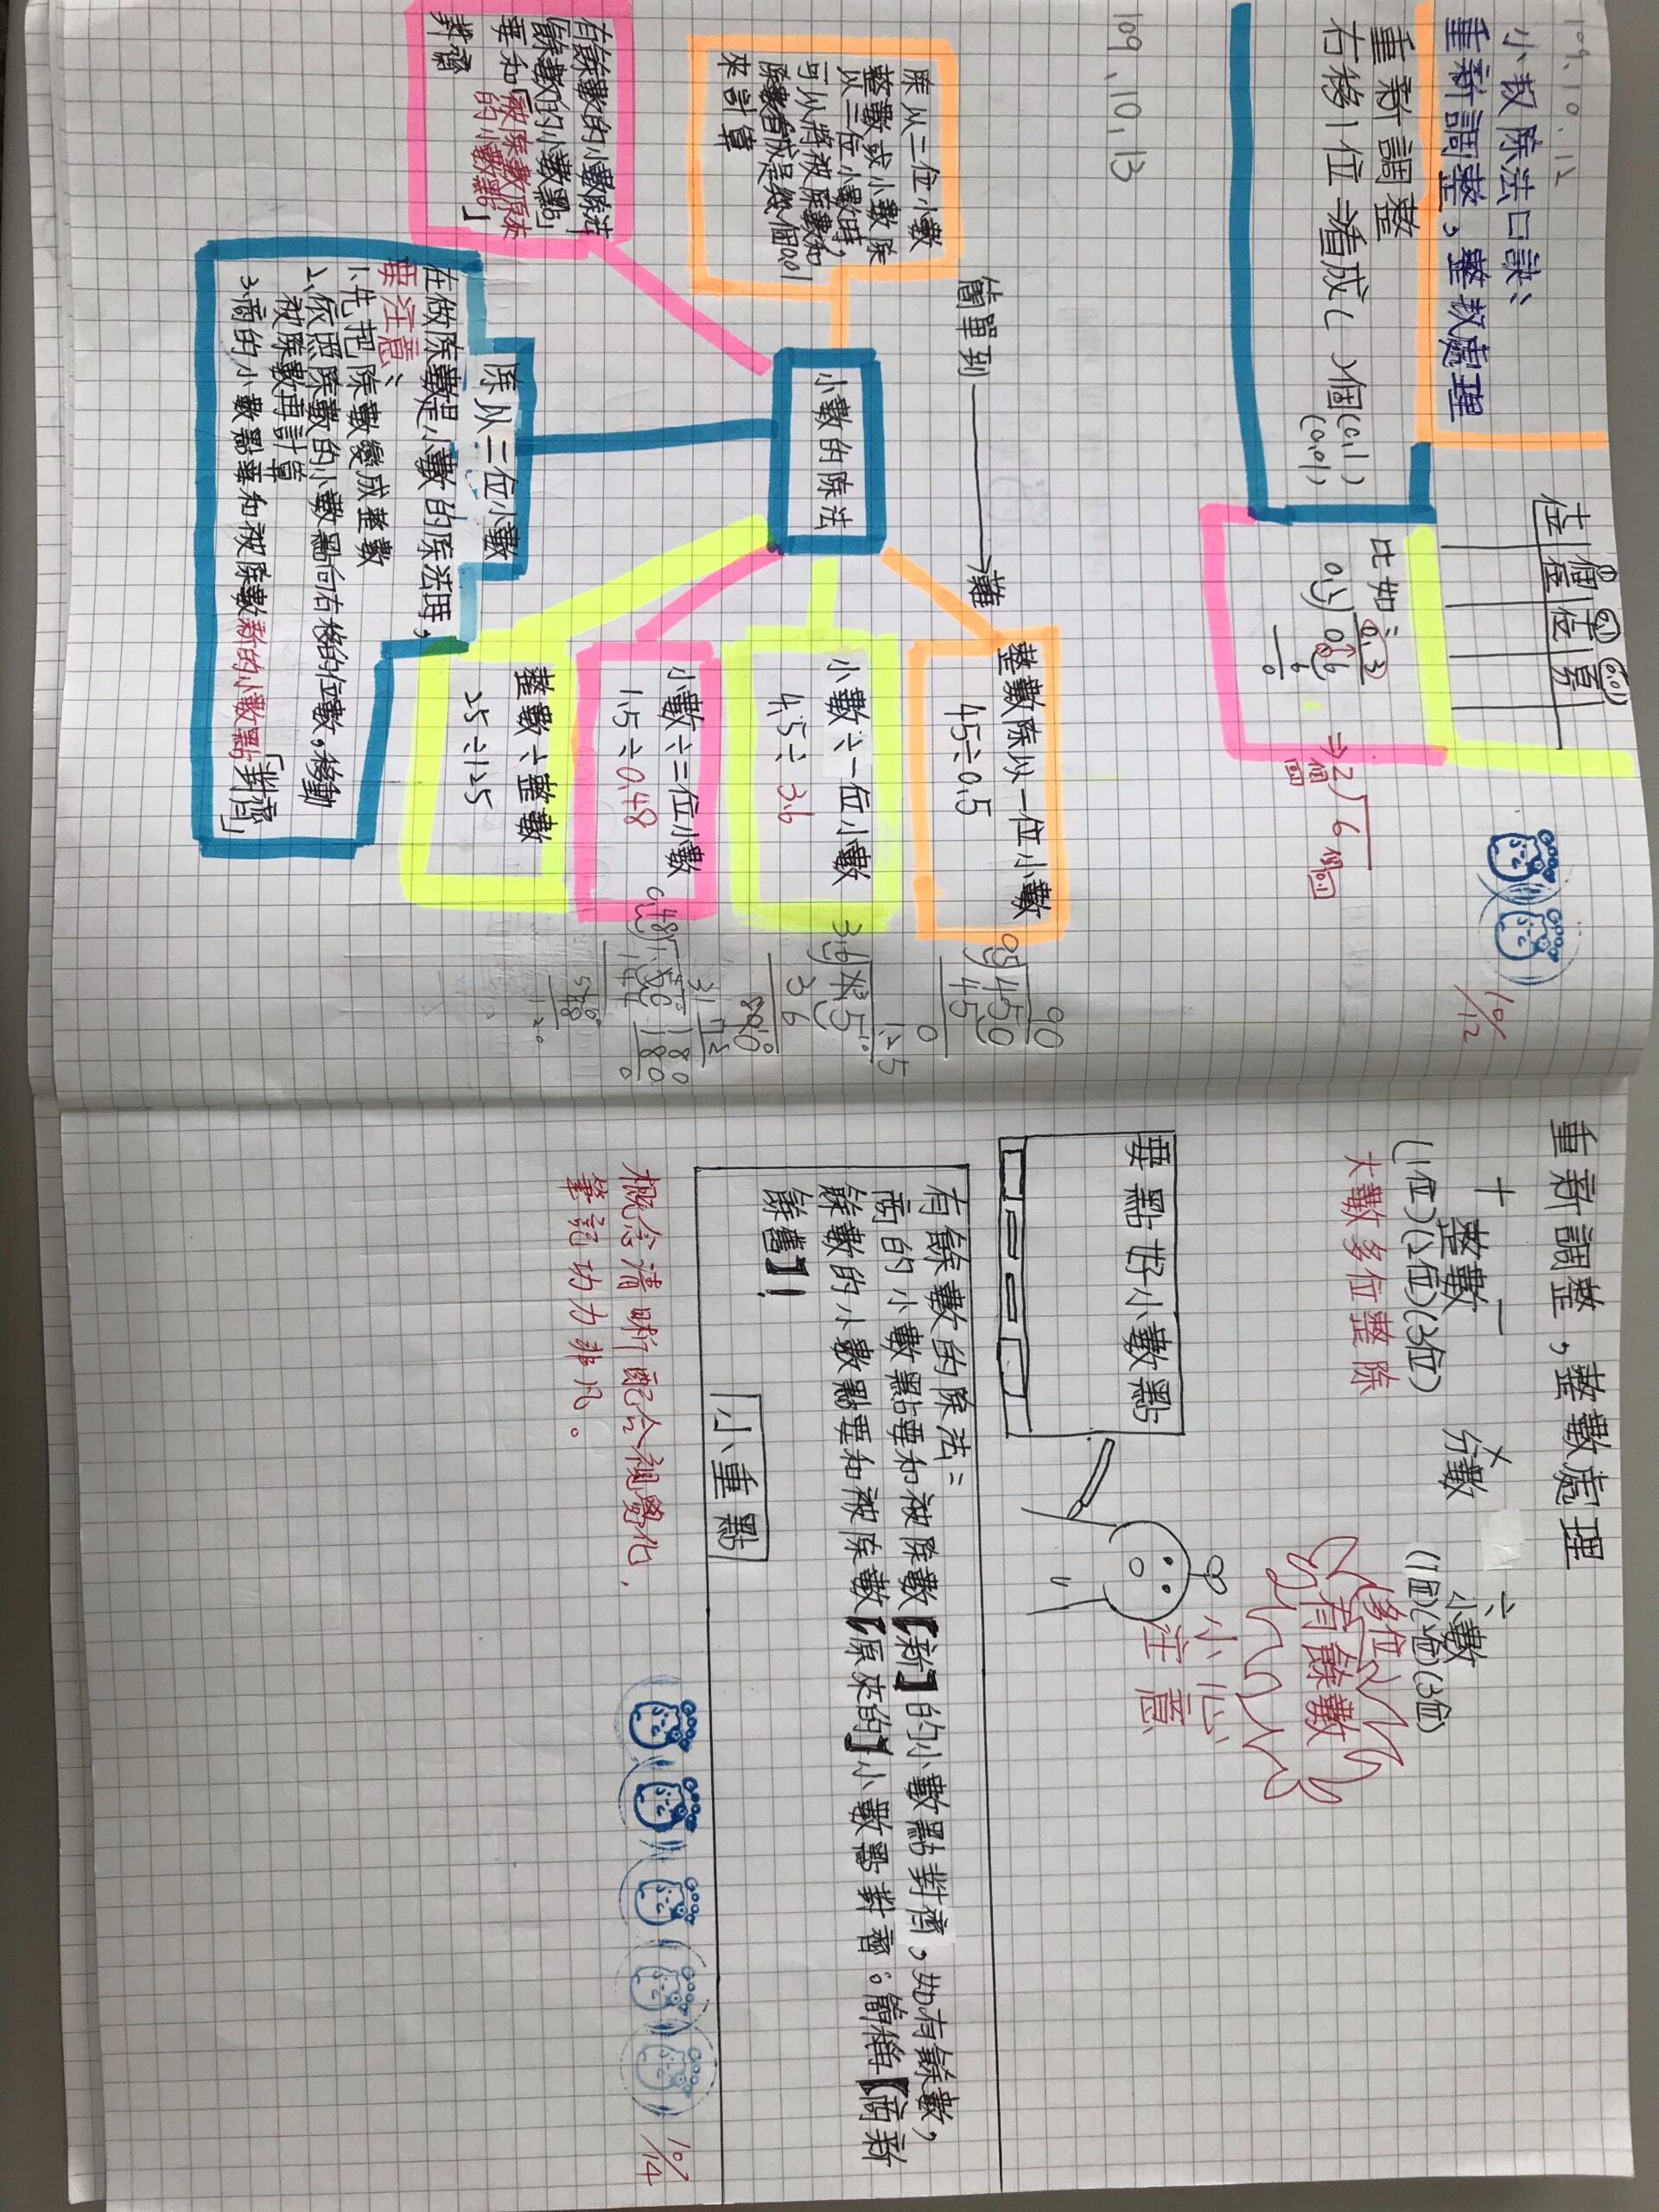 109.10.12
小叔除法口訣：
重新調整，整叔處理
重新調整
右移1位→看成( )個(0.1)
(0.01)
位 個位 十位 百分
① 0.1 0.01
比如：
0.3
0.2)0.6
6
0
⇒2)6個0.1
個
10/12
109.10.13
簡單到→難
小數的除法
除以二位小數
整數或小數除
以二位小數時，
可以將被除數和
除數看成是幾個0.01
來計算
有餘數的小數除法
「餘數的小數點」
要和「被除數原來
的小數點」
對齊
除以二位小數
在做除數是小數的除法時，
要注意：
1.先把除數變成整數
2.依照除數的小數點向右移的位數，移動
被除數再計算
3.商的小數點要和被除數新的小數點「對齊」
整數除以一位小數
45÷0.5
小數÷一位小數
4.5÷3.6
小數÷二位小數
1.5÷0.48
整數÷整數
25÷125
90
0.5)450
45
0
1.25
3.6)4.5
36
重新調整，整數處理
＋ －
整數
(1位)(2位)(3位)
大數多位整除
×
分數
÷
小數
(1位)(2位)(3位)
多位
有餘數
要點好小數點
小心
注意
有餘數的除法：
商的小數點要和被除數【新】的小數點對齊，如有餘數，
餘數的小數點要和被除數【原來的】小數點對齊。簡稱【商新
餘舊】！
小重點
概念清晰配合視覺化，
筆記功力非凡。
10/14